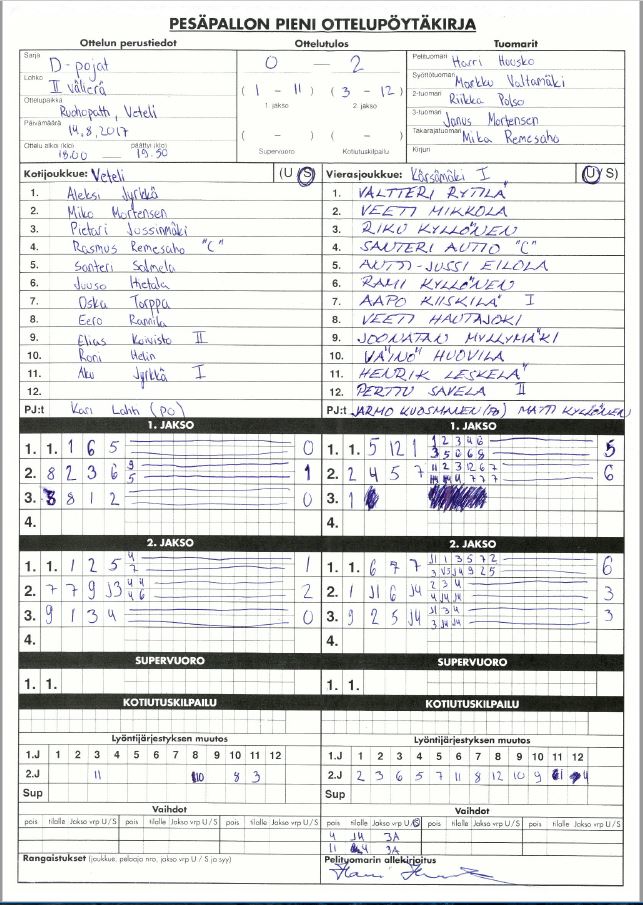 PESÄPALLON PIENI OTTELUPÖYTÄKIRJA
Ottelun perustiedot
Sarja D-pojat
Lohko II välierä
Ottelupaikka Ruohopath, Veteli
Päivämäärä 14.8.2017
Ottelu alkoi (klo) päättyi (klo)
18.00 — 19.50
Ottelutulos
0 — 2
( 1 - 11 ) ( 3 - 12 )
1. jakso 2. jakso
( - ) ( - )
Supervuoro Kotiutuskilpailu
Tuomarit
Pelituomari Harri Huusko
Syöttötuomari Markku Valtamäki
2-tuomari Riikka Polso
3-tuomari Janus Mortensen
Takarajatuomari Mika Remesaho
Kirjuri
Kotijoukkue: Veteli (U / S)
1. Aleksi Jyrkkä
2. Miko Mortensen
3. Pietari Jussinmäki
4. Rasmus Remesaho "C"
5. Santeri Salmela
6. Juuso Hietala
7. Oska Torppa
8. Eero Rannila
9. Elias Koivisto II
10. Roni Helin
11. Aku Jyrkkä I
12.
PJ:t Kari Lahti (PO)
Vierasjoukkue: Kärsämäki I (U / S)
1. VALTTERI RYTILÄ
2. VEETI MIKKOLA
3. RIKU KYLLÖNEN
4. SANTERI AUTIO "C"
5. ANTTI-JUSSI EILOLA
6. RAMI KYLLÖNEN
7. AAPO KIISKILÄ I
8. VEETI HAUTAJOKI
9. JOONATAN MYLLYMÄKI
10. VÄINÖ HUOVILA
11. HENRIK LESKELÄ
12. PERTTU SAVELA II
PJ:t JARMO KUOSMANEN (PO) MATTI KYLLÖNEN
1. JAKSO
1. 1. 1 6 5 0
2. 8 2 3 6 3 5 1
3. 8 8 1 2 0
4.
1. JAKSO
1. 1. 5 12 1 1 2 3 4 6 5
3 5 6 6 8
2. 2 4 5 7 11 2 3 12 6 7 6
3. 1
4.
2. JAKSO
1. 1. 1 2 5 4 2 1
2. 7 7 9 J3 4 4 4 6 2
3. 9 1 3 4 0
4.
2. JAKSO
1. 1. 6 7 7 J1 1 3 5 7 2 6
2. 1 J1 6 J4 2 3 4 3
4 J4 J4
3. 9 2 5 J4 J1 3 4 3
3 J4 J4
4.
SUPERVUORO
1. 1.
SUPERVUORO
1. 1.
KOTIUTUSKILPAILU
KOTIUTUSKILPAILU
Lyöntijärjestyksen muutos
1.J 1 2 3 4 5 6 7 8 9 10 11 12
2.J 11 10 8 3
Sup
Lyöntijärjestyksen muutos
1.J 1 2 3 4 5 6 7 8 9 10 11 12
2.J 2 3 6 5 7 11 8 12 10 9 1 4
Sup
Vaihdot
pois tilalle Jakso vrp U / S pois tilalle Jakso vrp U / S pois tilalle Jakso vrp U / S
Vaihdot
pois tilalle Jakso vrp U / S pois tilalle Jakso vrp U / S pois tilalle Jakso vrp U / S
4 J4 3A
11 4 3A
Rangaistukset (joukkue, pelaaja nro, jakso vrp U / S ja syy)
Pelituomarin allekirjoitus